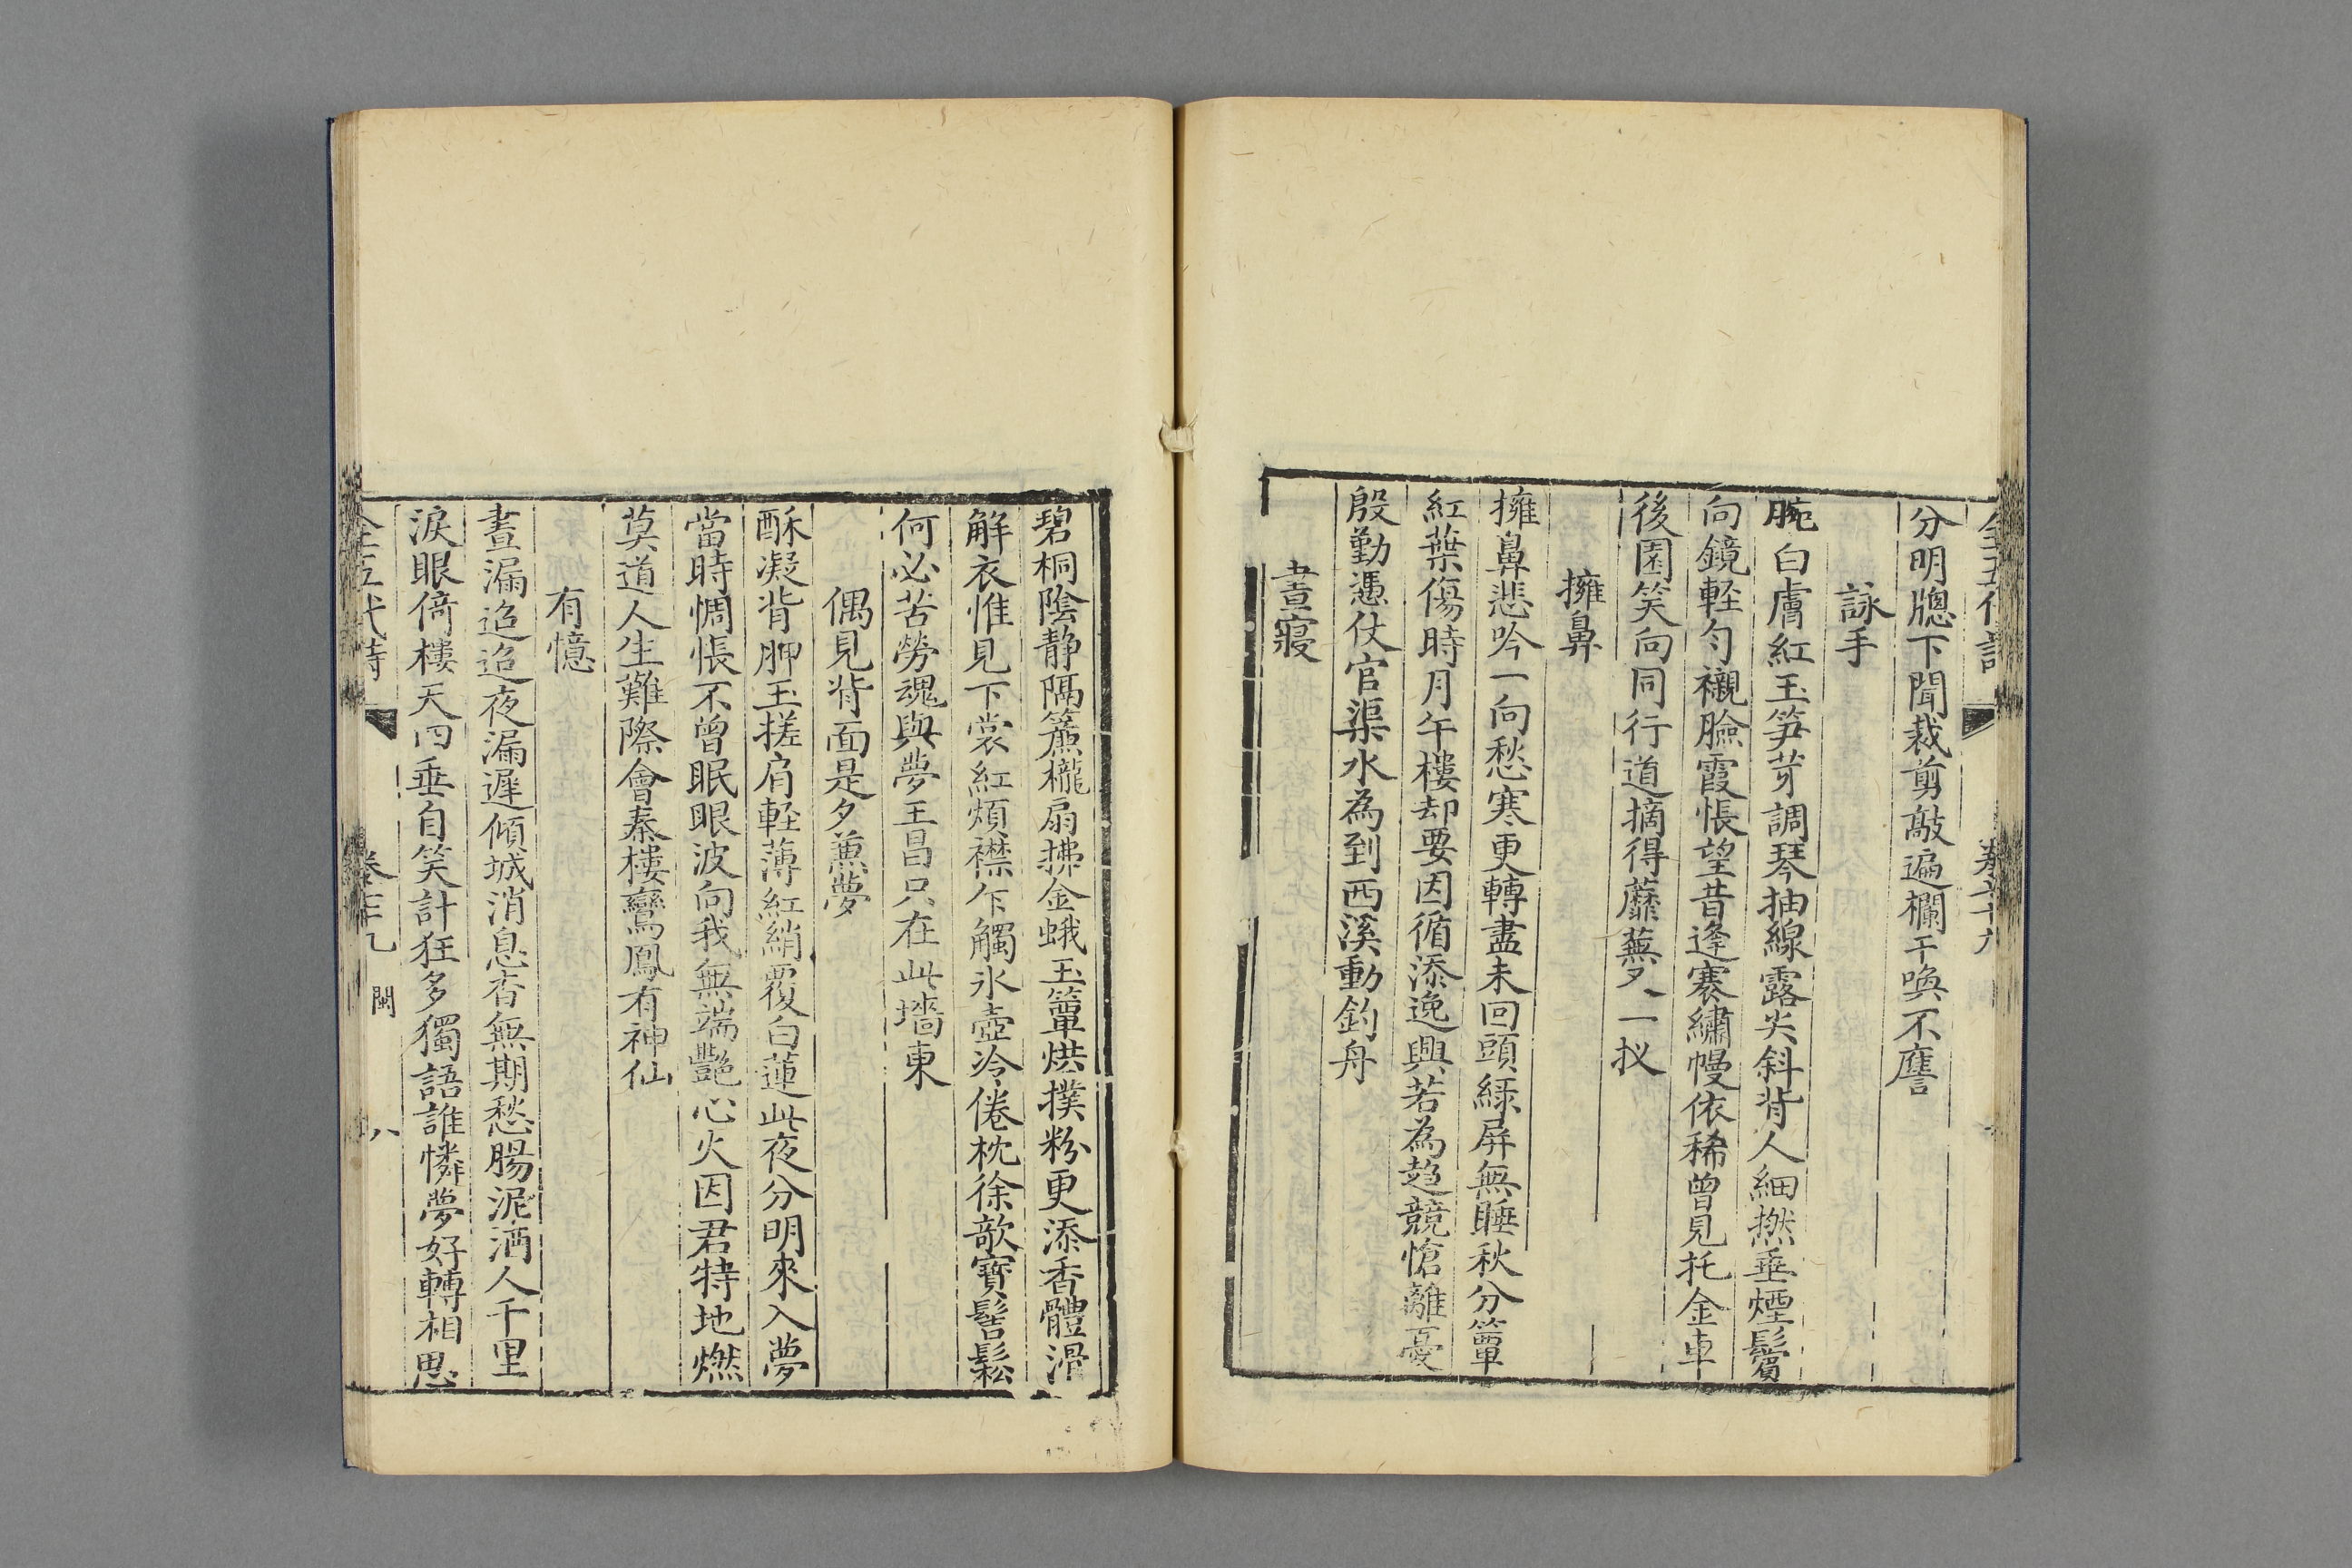 分明牕下聞裁剪敲遍欄干喚不譍
詠手
腕白膚紅玉笋芽調琴抽線露尖斜背人細撚垂煙鬢
向鏡軽勻襯臉霞悵望昔逢褰繡幔依稀曾見托金車
後園笑向同行道摘得蘼蕪又一扠
擁鼻
擁鼻悲吟一向愁寒更轉盡未回頭緑屏無睡秋分簟
紅葉傷時月午樓却要因循添逸興若為趍競愴離憂
殷勤憑仗官渠水為到西溪動釣舟
晝寢
碧桐陰静隔簾櫳扇拂金蛾玉簟烘撲粉更添香體滑
解衣惟見下裳紅煩襟乍觸氷壺冷倦枕徐欹寶髻鬆
何必苦勞魂與夢王昌只在此墻東
偶見背面是夕蒹夢
酥凝背胛玉搓肩軽薄紅綃覆白蓮此夜分明來入夢
當時惆悵不曾眠眼波向我無端艷心火因君特地燃
莫道人生難際會秦樓鸞鳳有神仙
有憶
晝漏迢迢夜漏遲傾城消息杳無期愁腸泥酒人千里
淚眼倚樓天四垂自笑計狂多獨語誰憐夢好轉相思
全五代詩 卷 閩 八